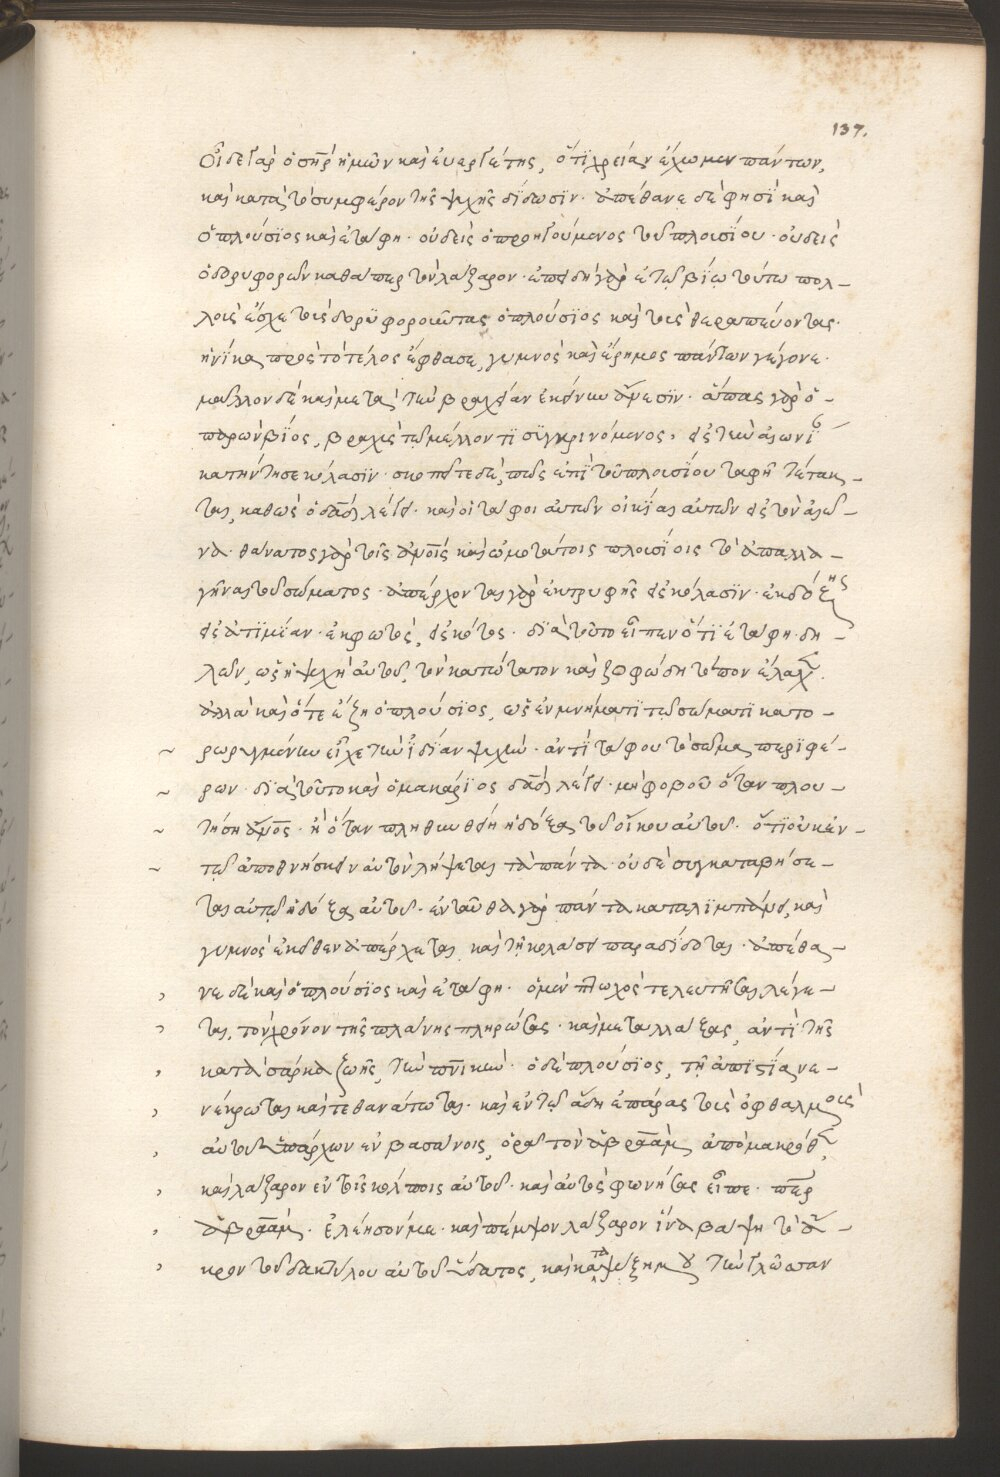 137.
Οἶδε γὰρ ὁ σῆρ ἡμῶν καὶ εὐεργέτης, ὅτι χρείαν ἔχωμεν πάντων,
καὶ κατὰ τὸ συμφέρον τῆς ψυχῆς δίδωσϊν· ἀπέθανε δὲ φησὶ καὶ
ὁ πλούσϊος καὶ ἐτάφη· οὐδεὶς ὁ προηγούμενος τοῦ πλουσίου· οὐδεὶς
ὁ δορυφορῶν καθάπερ τὸν λάζαρον· ἐπειδὴ γὰρ ἐν τῷ βίῳ τούτω πολ-
λοὺς ἔσχε τοὺς δορυφοροῦντας ὁ πλούσϊος καὶ τοὺς θεραπεύοντας·
ἡνίκα πρὸς τὸ τέλος ἔφθασε, γυμνὸς καὶ ἔρημος πάντων γέγονε·
μᾶλλον δὲ καὶ μετὰ τὴν βραχεῖαν ἐκείνην ἄνεσϊν· ἅπας γὰρ ὁ-
παρὼν βίος, βραχὺς τῷ μέλλοντι συγκρινόμενος, εἰς τὴν αἰώνι
κατήντησε κόλασϊν· σκοπεῖτε δὲ, πῶς ἐπὶ τοῦ πλουσίου ταφὴ τέτακ-
ται, καθὼς ὁ δᾱδ λέγει· καὶ οἱ τάφοι αὐτῶν οἰκίαι αὐτῶν εἰς τὸν αἰῶ-
να· θάνατος γὰρ τοῖς ἀνοῖς καὶ ὠμοτάτοις πλουσίοις τὸ ἀπαλλα-
γῆναι τοῦ σώματος· ἀπέρχονται γὰρ ἐκ τρυφῆς εἰς κόλασϊν· ἐκ δόξης
εἰς ἀτιμίαν· ἐκ φωτὸς, εἰς σκότος· διὰ τοῦτο εἶπεν ὅτι ἐτάφη· δη-
λῶν, ὡς ἡ ψυχὴ αὐτοῦ, τὸν κατώτατον καὶ ζοφώδη τόπον ἔλαχε·
ἀλλὰ καὶ ὅτε ἔζη ὁ πλούσϊος, ὡς ἐν μνήματι τῷ σώματι κατο-
ρωρυγμένην εἶχε τὴν ἰδίαν ψυχὴν· ἀντὶ τάφου τὸ σῶμα περιφέ-
ρων· διὰ τοῦτο καὶ ὁ μακάριος δᾱδ λέγει· μὴ φοβοῦ ὅταν πλου-
τήση ἄνος· ἢ ὅταν πληθυνθῆ ἡ δόξα τοῦ οἴκου αὐτοῦ· ὅτι οὐκ ἐν-
τῷ ἀποθνήσκειν αὐτὸν λήψεται τὰ πάντα· οὐδὲ συγκαταβήσε-
ται αὐτῷ ἡ δόξα αὐτοῦ· ἐνταῦθα γὰρ πάντα καταλιμπάνει, καὶ
γυμνὸς ἐκεῖθεν ἀπέρχεται, καὶ τῆ κολάσει παραδίδοται· ἀπέθα-
νε δὲ καὶ ὁ πλούσϊος καὶ ἐτάφη· ὁ μὲν πτωχὸς τελευτῆσαι λέγε-
ται, τὸν χρόνον τῆς πλάνης πληρώσας· καὶ μεταλλάξας, ἀντὶ τῆς
κατὰ σάρκα ζωῆς, τὴν πν̄ικὴν· ὁ δὲ πλούσϊος, τῇ ἀπιστία νε-
νέκρωται καὶ τεθανάτωται· καὶ ἐν τῷ ἄδη ἐπάρας τοὺς ὀφθαλμοὺς
αὐτοῦ ὑπάρχων ἐν βασάνοις, ὁρᾷ τὸν ἀβραὰμ ἀπὸ μακρόθεν,
καὶ λάζαρον ἐν τοῖς κόλποις αὐτοῦ· καὶ αὐτὸς φωνήσας εἶπε· πε̄ρ
ἀβραὰμ· ἐλέησόν με· καὶ πέμψον λάζαρον ἵνα βάψη τὸ ἄ-
κρον τοῦ δακτύλου αὐτοῦ ὕδατος, καὶ καταψύξη μου τὴν γλῶσσαν